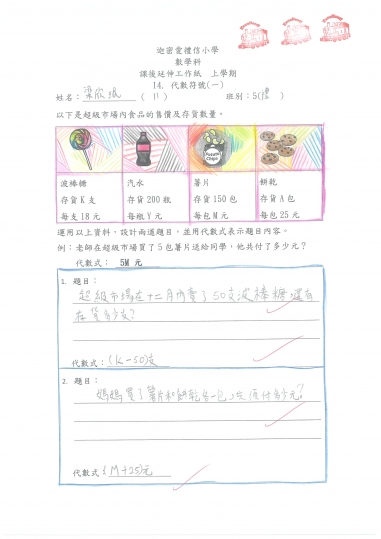 迦密愛禮信小學
數學科
課後延伸工作紙 上學期
14. 代數符號(一)
姓名： ( 11 ) 班別：5(禮 )
以下是超級市場內食品的售價及存貨數量。
波棒糖 汽水 薯片 餅乾
存貨K支 存貨200瓶 存貨150包 存貨A包
每支18元 每瓶Y元 每包M元 每包25元
運用以上資料，設計兩道題目，並用代數式表示題目內容。
例：老師在超級市場買了5包薯片送給同學，他共付了多少元？
代數式： 5M 元
1. 題目：
超級市場在十二月內賣了50支波棒糖，還有
存貨多少支？
代數式：(K-50)支
2. 題目：
媽媽買了薯片和餅乾各一包，共須付多少元？
代數式：(M+25)元